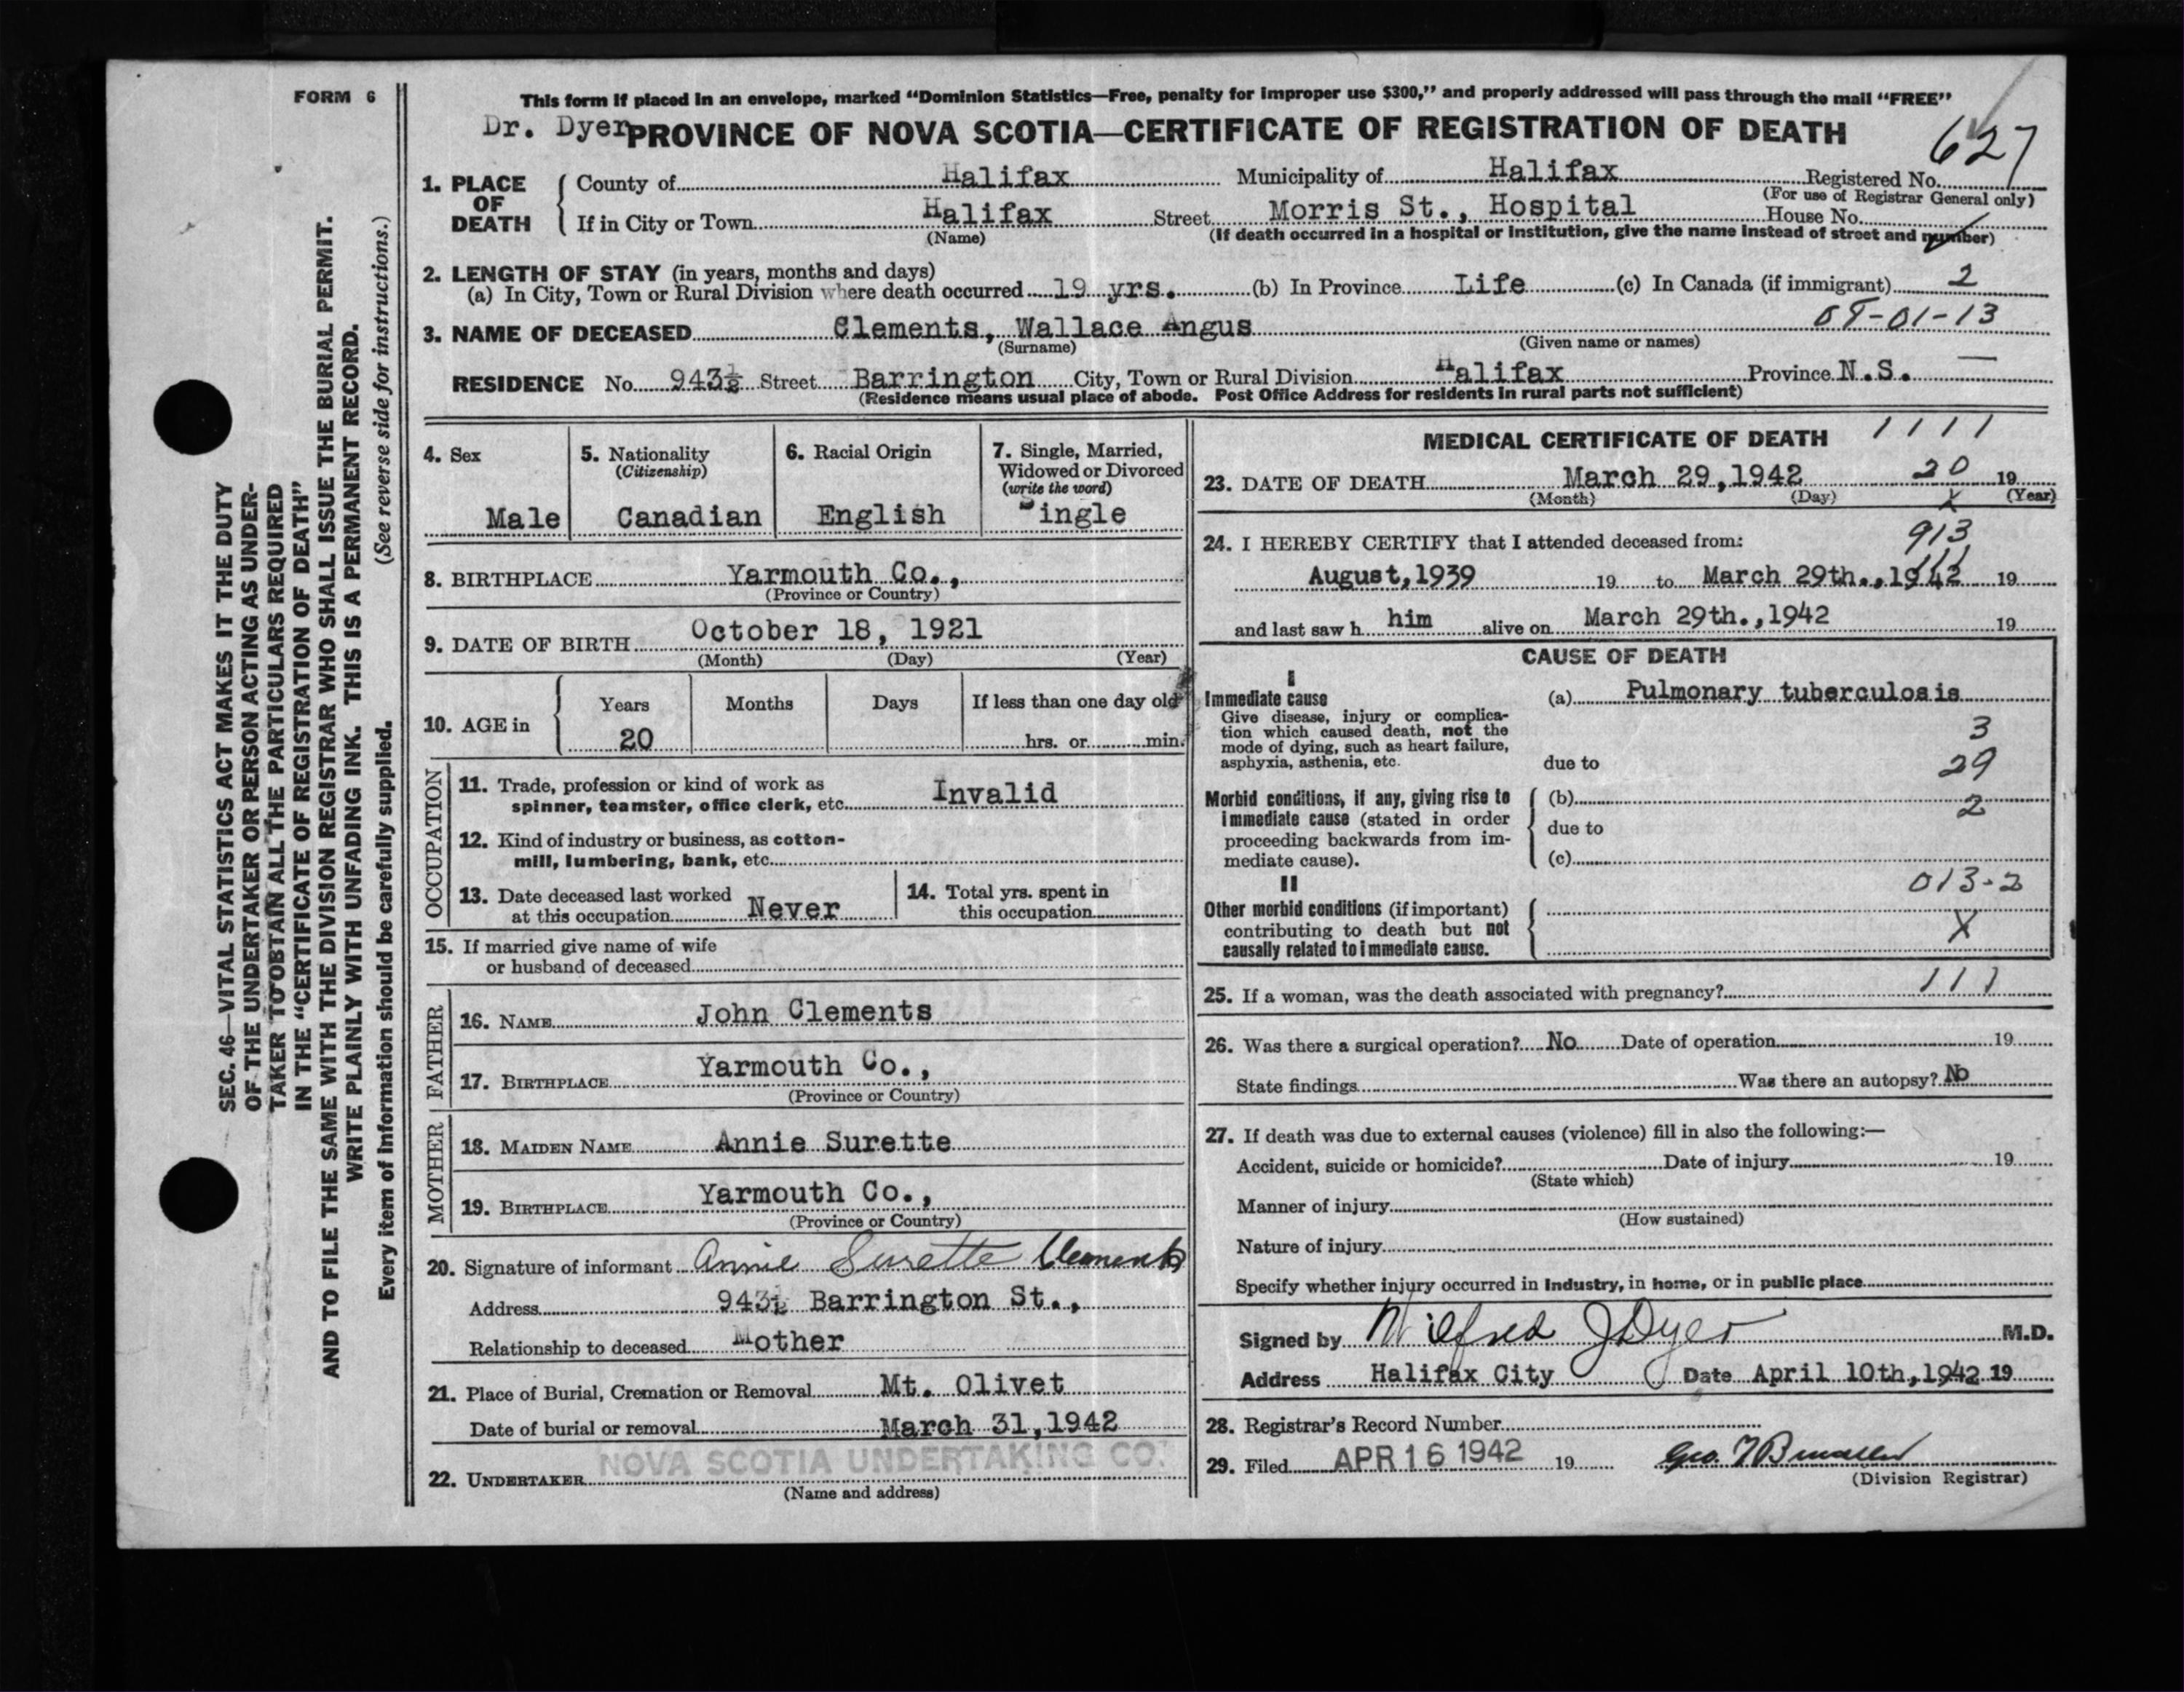 FORM 6
This form if placed in an envelope, marked "Dominion Statistics—Free, penalty for improper use $300," and properly addressed will pass through the mail "FREE"
Dr. Dyer PROVINCE OF NOVA SCOTIA—CERTIFICATE OF REGISTRATION OF DEATH
627
1. PLACE OF DEATH { County of Halifax Municipality of Halifax Registered No.
(For use of Registrar General only)
If in City or Town Halifax Street Morris St., Hospital House No.
(Name) (If death occurred in a hospital or institution, give the name instead of street and number)
2. LENGTH OF STAY (in years, months and days)
(a) In City, Town or Rural Division where death occurred 19 yrs. (b) In Province Life (c) In Canada (if immigrant) 2
3. NAME OF DECEASED Clements, Wallace Angus 08-01-13
(Surname) (Given name or names)
RESIDENCE No. 943½ Street Barrington City, Town or Rural Division Halifax Province N.S. —
(Residence means usual place of abode. Post Office Address for residents in rural parts not sufficient)
4. Sex
Male
5. Nationality
(Citizenship)
Canadian
6. Racial Origin
English
7. Single, Married,
Widowed or Divorced
(write the word)
Single
8. BIRTHPLACE Yarmouth Co.,
(Province or Country)
9. DATE OF BIRTH October 18, 1921
(Month) (Day) (Year)
10. AGE in { Years Months Days If less than one day old
20 hrs. or min.
OCCUPATION
11. Trade, profession or kind of work as
spinner, teamster, office clerk, etc. Invalid
12. Kind of industry or business, as cotton-
mill, lumbering, bank, etc.
13. Date deceased last worked
at this occupation Never
14. Total yrs. spent in
this occupation
15. If married give name of wife
or husband of deceased
FATHER
16. NAME John Clements
17. BIRTHPLACE Yarmouth Co.,
(Province or Country)
MOTHER
18. MAIDEN NAME Annie Surette
19. BIRTHPLACE Yarmouth Co.,
(Province or Country)
20. Signature of informant Annie Surette Clements
Address 943½ Barrington St.,
Relationship to deceased Mother
21. Place of Burial, Cremation or Removal Mt. Olivet
Date of burial or removal March 31, 1942
22. UNDERTAKER NOVA SCOTIA UNDERTAKING CO.
(Name and address)
MEDICAL CERTIFICATE OF DEATH 1111
23. DATE OF DEATH March 29, 1942 20 19
(Month) (Day) x (Year)
24. I HEREBY CERTIFY that I attended deceased from: 913
111
August, 1939 19 to March 29th., 1942 19
and last saw h him alive on March 29th., 1942 19
CAUSE OF DEATH
I
Immediate cause (a) Pulmonary tuberculosis
Give disease, injury or complica-
tion which caused death, not the
mode of dying, such as heart failure,
asphyxia, asthenia, etc. due to
3
29
2
Morbid conditions, if any, giving rise to
immediate cause (stated in order
proceeding backwards from im-
mediate cause).
{ (b)
due to
(c)
II
013-2
Other morbid conditions (if important)
contributing to death but not
causally related to immediate cause.
X
25. If a woman, was the death associated with pregnancy? 111
26. Was there a surgical operation? No Date of operation 19
State findings Was there an autopsy? No
27. If death was due to external causes (violence) fill in also the following:—
Accident, suicide or homicide? Date of injury 19
(State which)
Manner of injury
(How sustained)
Nature of injury
Specify whether injury occurred in Industry, in home, or in public place
Signed by Wilfred J Dyer M.D.
Address Halifax City Date April 10th, 1942 19
28. Registrar's Record Number
29. Filed APR 16 1942 19
(Division Registrar)
SEC. 46—VITAL STATISTICS ACT MAKES IT THE DUTY
OF THE UNDERTAKER OR PERSON ACTING AS UNDER-
TAKER TO OBTAIN ALL THE PARTICULARS REQUIRED
IN THE "CERTIFICATE OF REGISTRATION OF DEATH"
AND TO FILE THE SAME WITH THE DIVISION REGISTRAR WHO SHALL ISSUE THE BURIAL PERMIT.
WRITE PLAINLY WITH UNFADING INK. THIS IS A PERMANENT RECORD.
Every item of information should be carefully supplied. (See reverse side for instructions.)